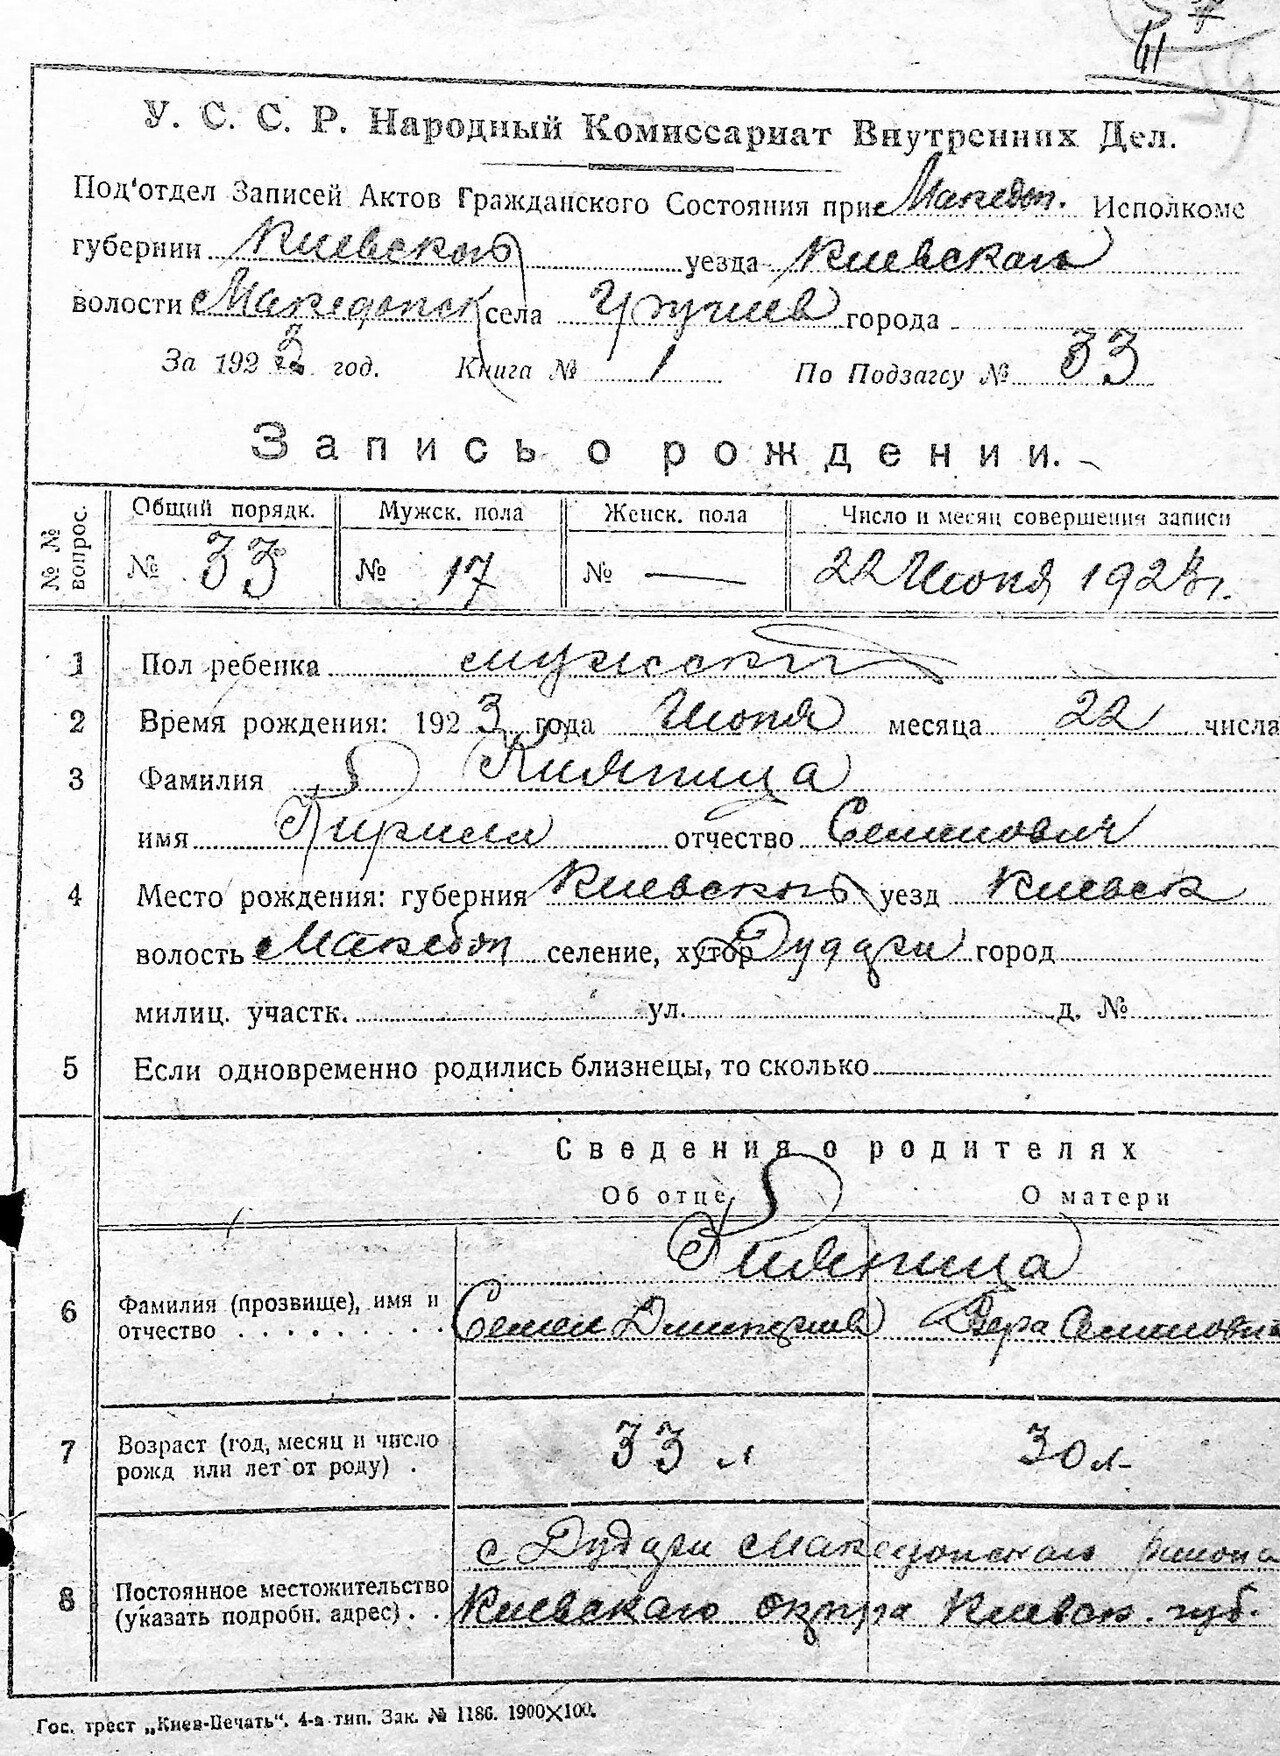 У. С. С. Р. Народный Комиссариат Внутренних Дел.
Под'отдел Записей Актов Гражданского Состояния при Македон. Исполкоме
губернии Киевской уезда Киевского
волости Македонск села города
За 1923 год. Книга № 1 По Подзагсу № 33
Запись о рождении.
№ № вопрос.
Общий порядк. Мужск. пола Женск. пола Число и месяц совершения записи
№ 33 № 17 № — 22 Июня 1923 г.
1 Пол ребенка мужской
2 Время рождения: 1923 года Июня месяца 22 числа
3 Фамилия Кияница
имя Кирилл отчество Семенович
4 Место рождения: губерния Киевской уезд Киевск
волость Македон селение, хутор Дудари город
милиц. участк. ул. д. №
5 Если одновременно родились близнецы, то сколько
Сведения о родителях
Об отце О матери
Кияница
6 Фамилия (прозвище), имя и
отчество . . . . . . . . . Семен Дмитриев Вера Семеновна
7 Возраст (год, месяц и число
рожд или лет от роду) . 33 л 30 л
с Дудари Македонского района
8 Постоянное местожительство
(указать подробн. адрес) . . Киевского округа Киевск. губ.
Гос. трест „Киев-Печать“. 4-а тип. Зак. № 1186. 1900×100.